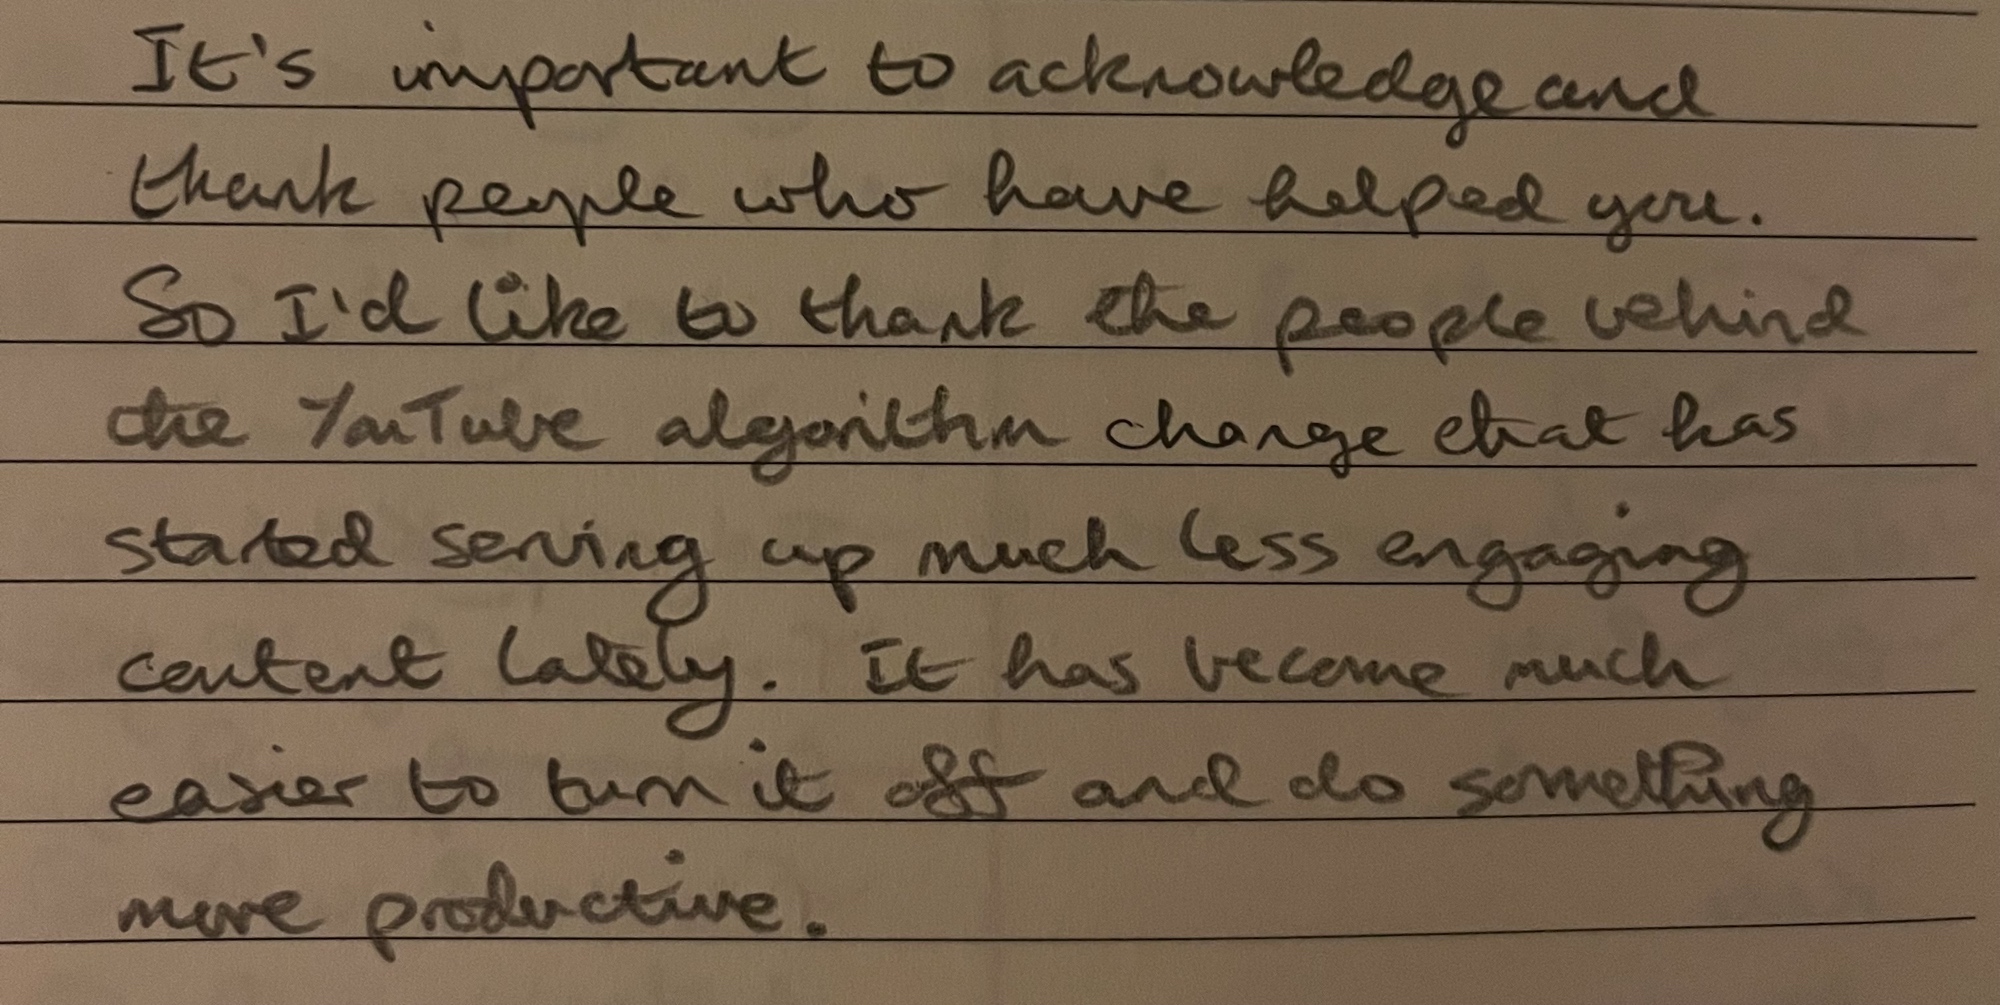 It's important to acknowledge and
thank people who have helped you.
So I'd like to thank the people behind
the YouTube algorithm change that has
started serving up much less engaging
content lately. It has become much
easier to turn it off and do something
more productive.